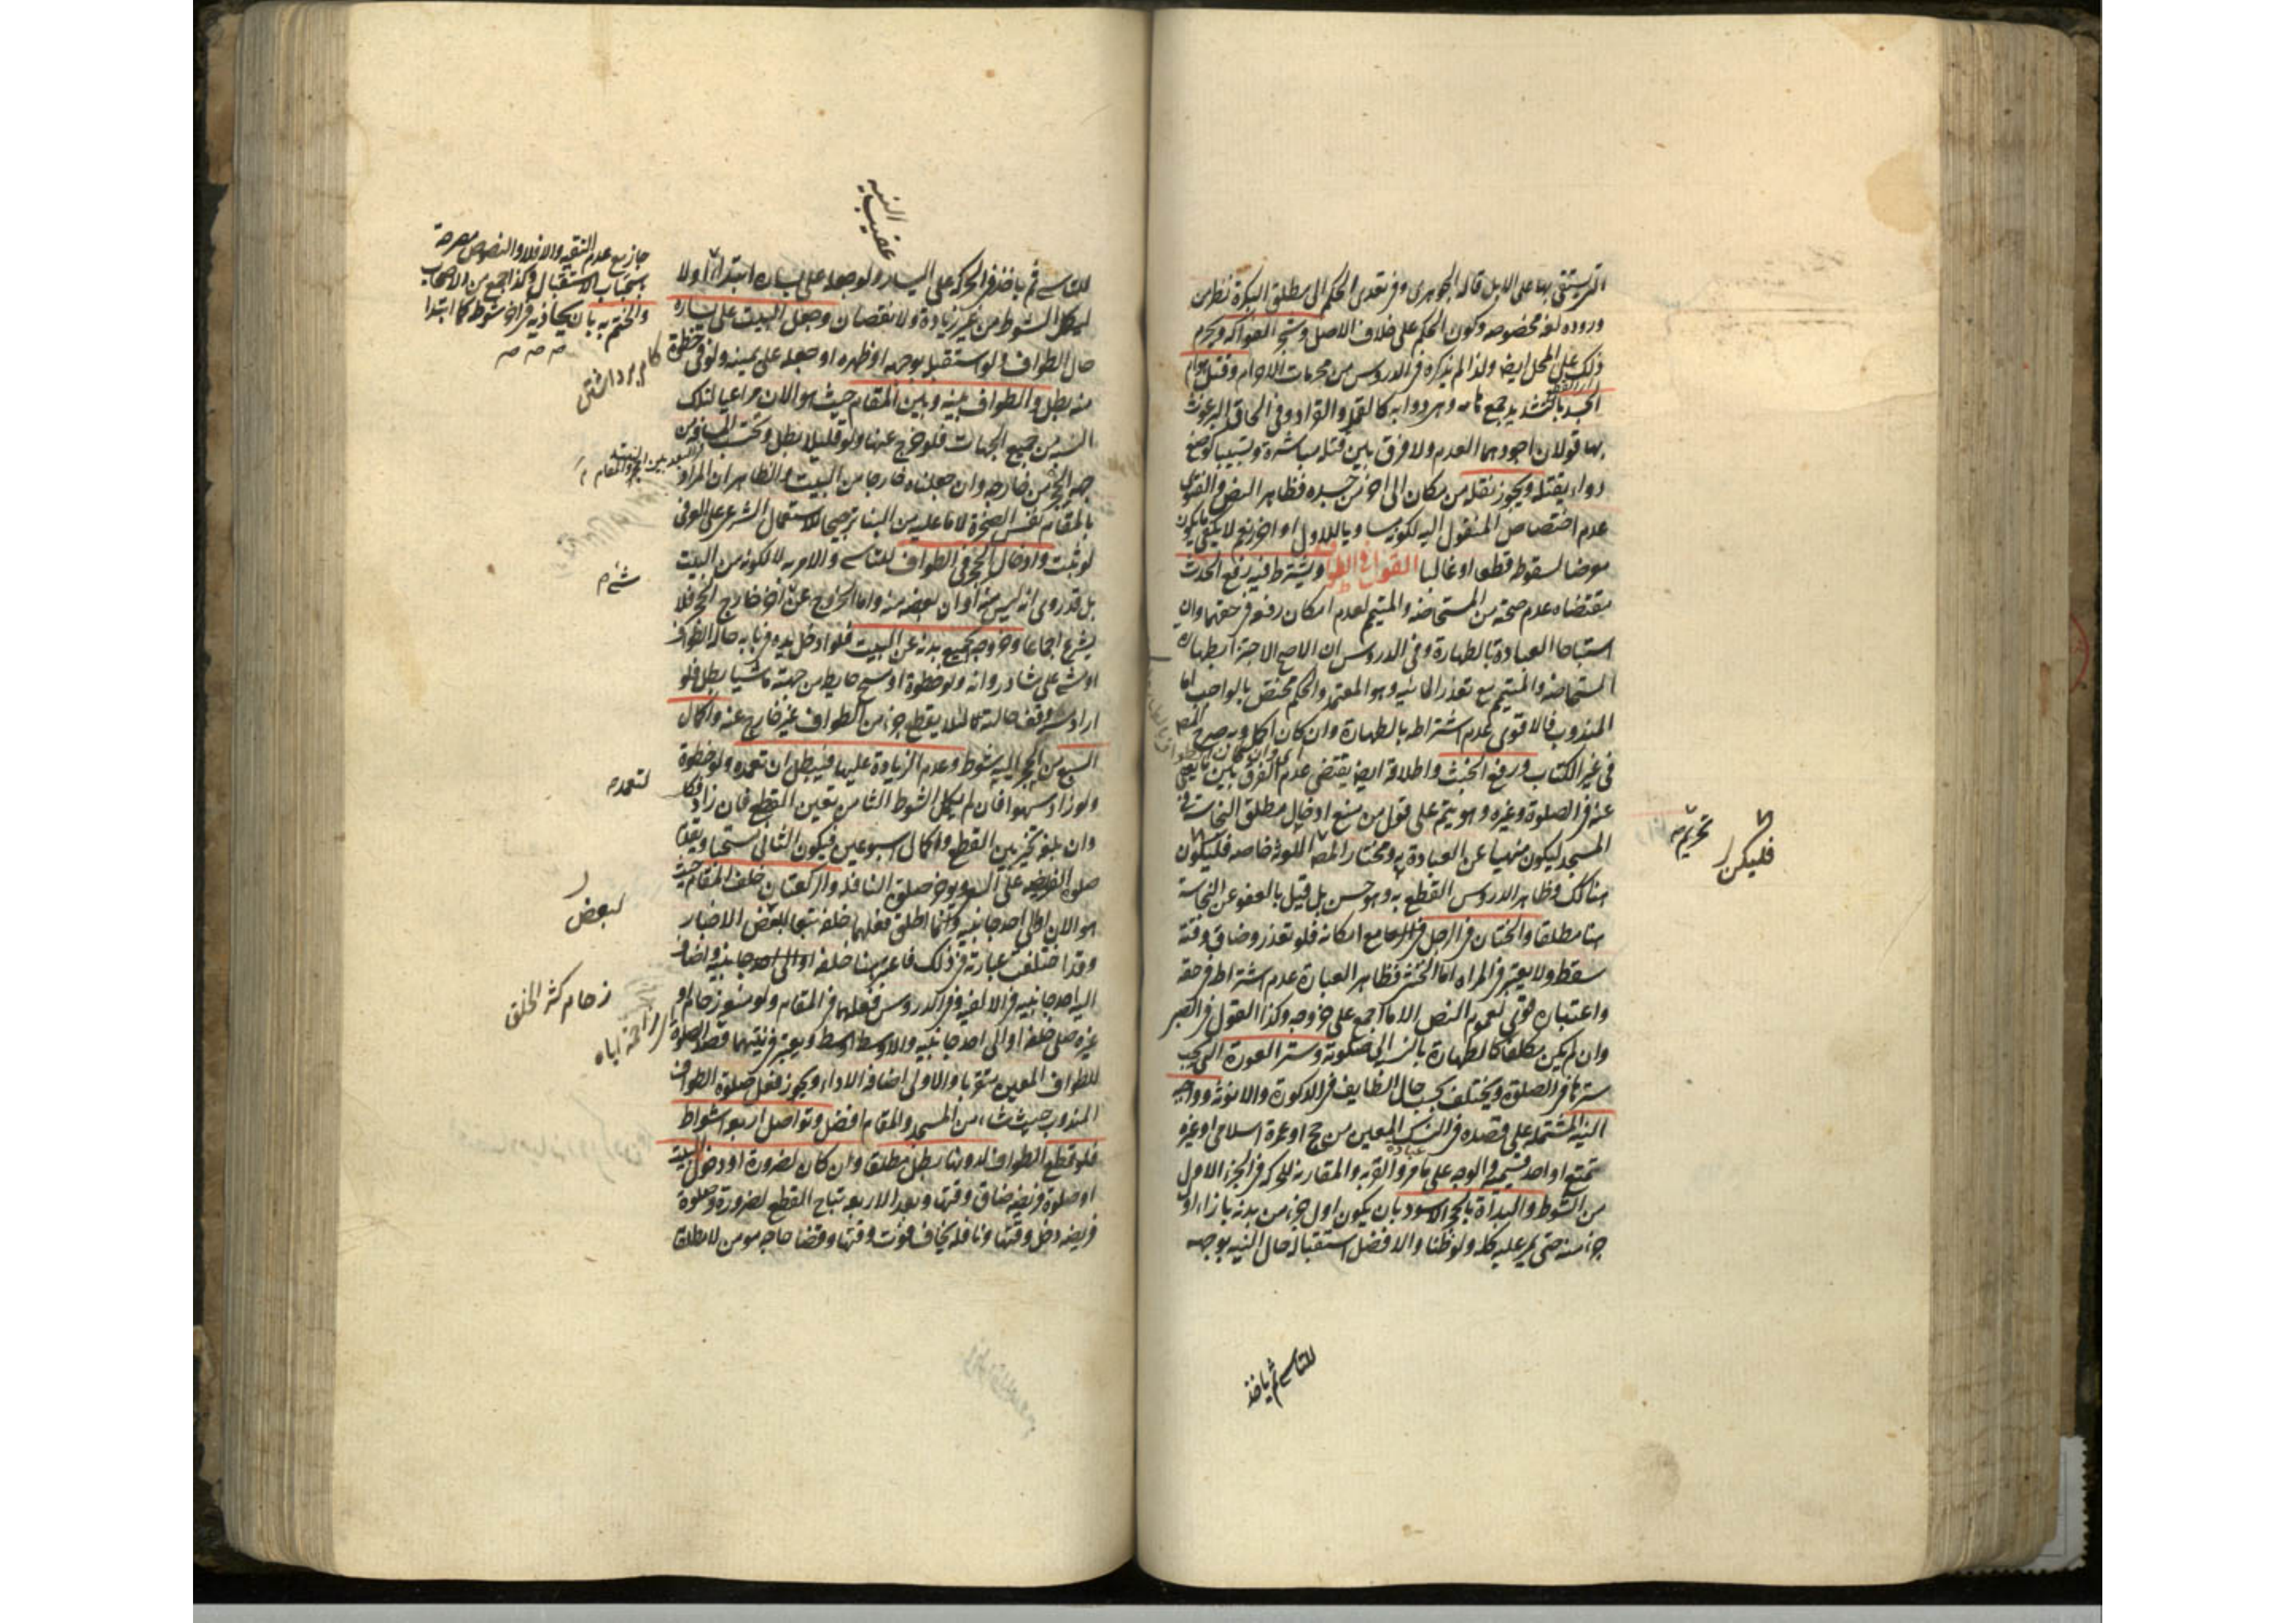 التي يستقى بها على الابل قاله الجوهرى وفي تعدى الحكم الى مطلق البكرة نظر من
وروده لغة مخصوصه وكون الحكم على خلاف الاصل وشجر الفواكه ويحرم
ذلك على المحل ايضا ولذا لم يذكره في الدروس من محرمات الاحرام وقتل هوام
الجسد بالتشديد جمع هامه وهي دوابه كالقمل والقراد وفي الحاق البرغوث
بها قولان اجودهما العدم ولا فرق بين قتله مباشرة وتسبيبا كوضع
دواء يقتله ويجوز نقله من مكان الى اخر من جسده وظاهر النص والفتوى
عدم اختصاص المنقول اليه بكونه مساويا للاول او احرز نعم لا يكفى ما يكون
معرضا لسقوطه قطعا او غالبا القول في الطواف ويشترط فيه رفع الحدث
مقتضاه عدم صحته من المستحاضه والمتيمم لعدم امكان رفعه في حقهما وان
استباحا العبادة بالطهارة وفى الدروس ان الاصح الاجتزاء بطهارة
المستحاضه والمتيمم مع تعذر المائيه وهو المعتمد والحكم مختص بالواجب اما
المندوب فالاقوى عدم اشتراطه بالطهارة وان كان اكمل وبه صرح المصه
في غير الكتاب ورفع الخبث واطلاقه ايضا يقتضى عدم الفرق بين ما يعفى
عنه في الصلوة وغيره وهو يتم على قول من منع ادخال مطلق النجاسة في
المسجد ليكون منهيا عن العبادة به ومختار المصه الملوثة خاصه فليكون
هنا كك وظاهر الدروس القطع به وهو حسن بل قيل بالعفو عن النجاسة
هنا مطلقا والختان في الرجل مع امكانه فلو تعذر وضاق وقته
سقط ولا يعتبر في المراة اما الخنثى فظاهر العبارة عدم اشتراطه في حقه
واعتباره قوى لعموم النص الا ما اجمع على خروجه وكذا القول في الصبى
وان لم يكن مكلفا كالطهارة بالنسبة الى صلوته وستر العورة التى يجب
سترها في الصلوة ويختلف بحسب حال الطايف في الذكورة والانوثة وواجبه
النيه المشتمله على قصده في النسك المعين من حج او عمرة اسلامى او غيره
تمتع او احد قسيميه والوجه على ما مر والقربه والمقارنه للحركة في الجزء الاول
من الشوط والبداة بالحجر الاسود بان يكون اول جزء من بدنه بازاء اول
جزء منه حتى يمر عليه كله ولو ظنا والافضل استقباله حال النيه بوجهه
للتاسى ثم ياخذ
تحريمه
فليكن
للتاسى ثم ياخذ في الحركة على اليسار ولو جعله على يساره ابتداء اولا
ليكمل الشوط من غير زيادة ولا نقصان وجعل البيت على يساره
حال الطواف ولو استقبله بوجهه او ظهره او جعله على يمينه ولو في خطوة
منه بطل والطواف بينه وبين المقام حيث هو الان مراعيا لتلك
النسبة من جميع الجهات فلو خرج عنها ولو قليلا بطل وتحتسب المسافة من
جهة الحجر من خارجه وان جعلناه خارجا من البيت والظاهر ان المراد
بالمقام نفس الصخرة لا ما عليه من البناء ترجيحا للاستعمال الشرعى على العرفى
لو ثبت وادخال الحجر في الطواف للتاسى والامر به لا لكونه من البيت
بل قد روى انه ليس منه او ان بعضه منه واما الخروج عن اخر خارج الحجر فلا
يشرع اجماعا وخروجه بجميع بدنه عن البيت فلو ادخل يده في بابه حال الطواف
او مشى على شاذروانه ولو خطوة او مسح حايطه من جهته ماشيا بطل فلو
اراد مسه وقف حالته كى لا يقطع جزء من الطواف غير خارج عنه واكمال
السبع من الحجر اليه شوط وعدم الزيادة عليها فيبطل ان تعمده ولو خطوة
ولو زاد سهوا فان لم يكمل الشوط الثامن تعين القطع فان زاد فكا
وان بلغه تخير بين القطع واكمال اسبوعين فيكون الثانى مستحبا ويقدم
صلوة الفريضه على السعى ويوخر صلوة النافله والركعتان خلف المقام حيث
هو الان او الى احد جانبيه وانما اطلق فعلهما خلفه تبعا لبعض الاخبار
وقد اختلفت عبارته في ذلك فاعتبر هنا خلفه او الى احد جانبيه واضاف
اليه احد جانبيه في الالفيه وفي الدروس فعلهما في المقام ولو منعه زحام او
غيره صلى خلفه او الى احد جانبيه والاوسط اوسط ويعتبر في نيتهما قصد الصلوة
للطواف المعين متقربا والاولى اضافة الاداء ويجوز فعل صلوة الطواف
المندوب حيث شاء من المسجد والمقام افضل وتواصل اربعة اشواط
فلو قطع الطواف لدونها بطل مطلقا وان كان لضرورة او دخول البيت
او صلوة فريضه ضاق وقتها وبعد الاربعه يباح القطع لضرورة وصلوة
فريضه دخل وقتها ونافله يخاف فوت وقتها وقضاء حاجه مومن لا مطلقا
عقيب النيه
جاز مع عدم التقيه والا فلا والنصوص مصرحة
باستحباب الاستقبال وكذا جمع من الاصحاب
والختم به بان يحاذيه في اخر شوط كما ابتدا
لتعمده
لبعض
زحام كثرة الخلق